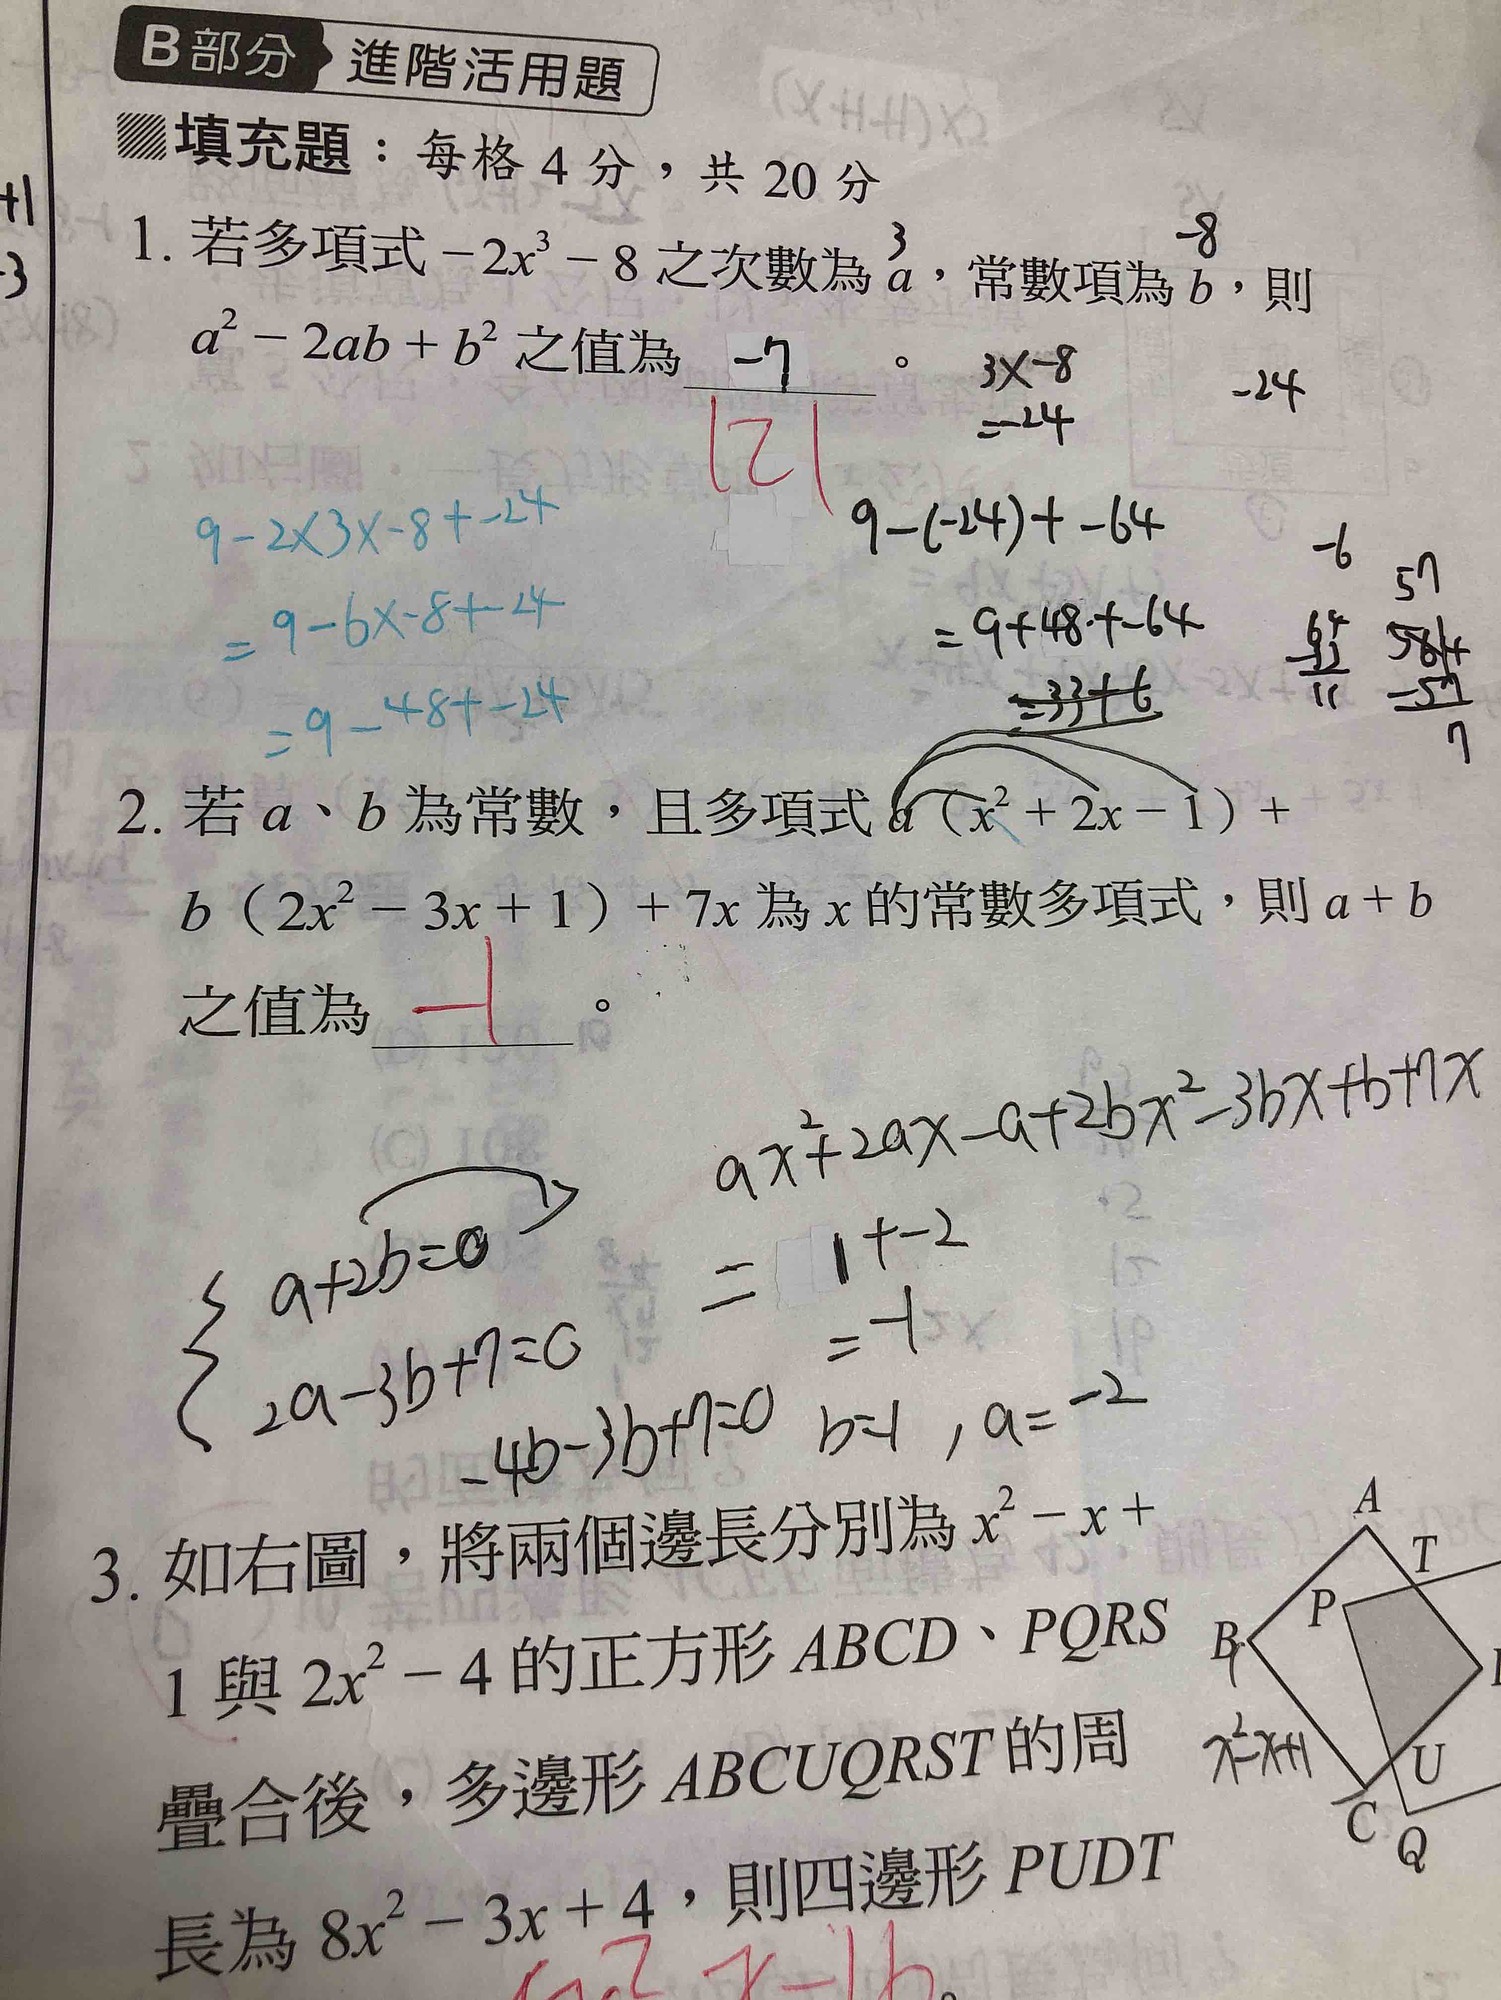 B部分 進階活用題
填充題：每格 4 分，共 20 分
+1
-3
3
-8
1. 若多項式 −2x³ − 8 之次數為 a，常數項為 b，則
a² − 2ab + b² 之值為 -7 。
121
3x-8
=-24
-24
9-2x3x-8+-24
=9-6x-8+-24
=9-48+-24
9-(-24)+-64
=9+48+-64
=-33+6
-6
57
7
2. 若 a、b 為常數，且多項式 a（x² + 2x − 1）+
b（2x² − 3x + 1）+ 7x 為 x 的常數多項式，則 a + b
之值為 -1 。
ax²+2ax-a+2bx²-3bx+b+7x
= 1+-2
=-1
a+2b=0
2a-3b+7=0
-4b-3b+7=0 b=1, a=-2
3. 如右圖，將兩個邊長分別為 x² − x +
1 與 2x² − 4 的正方形 ABCD、PQRS
疊合後，多邊形 ABCUQRST 的周
長為 8x² − 3x + 4，則四邊形 PUDT
A
T
P
B
x²-x+1
U
C
Q